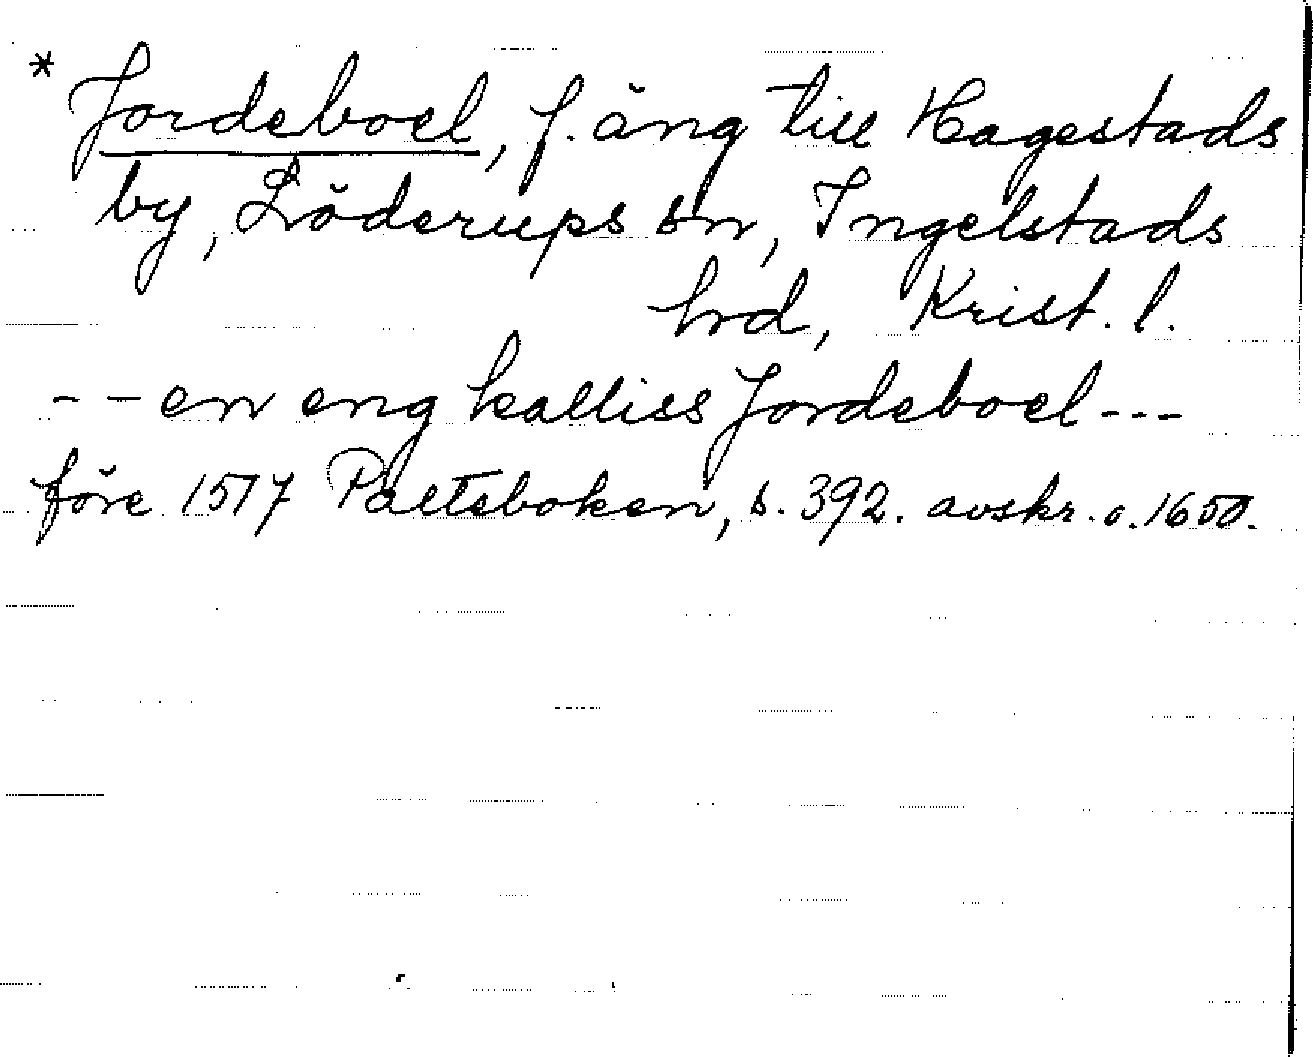 * Jordeboel, f. äng till Hagestads
by, Löderups sn, Ingelstads
hrd, Krist. l.
-- en eng kalliss Jordeboel ---
före 1517 Paltsboken, s. 392. avskr. o. 1650.